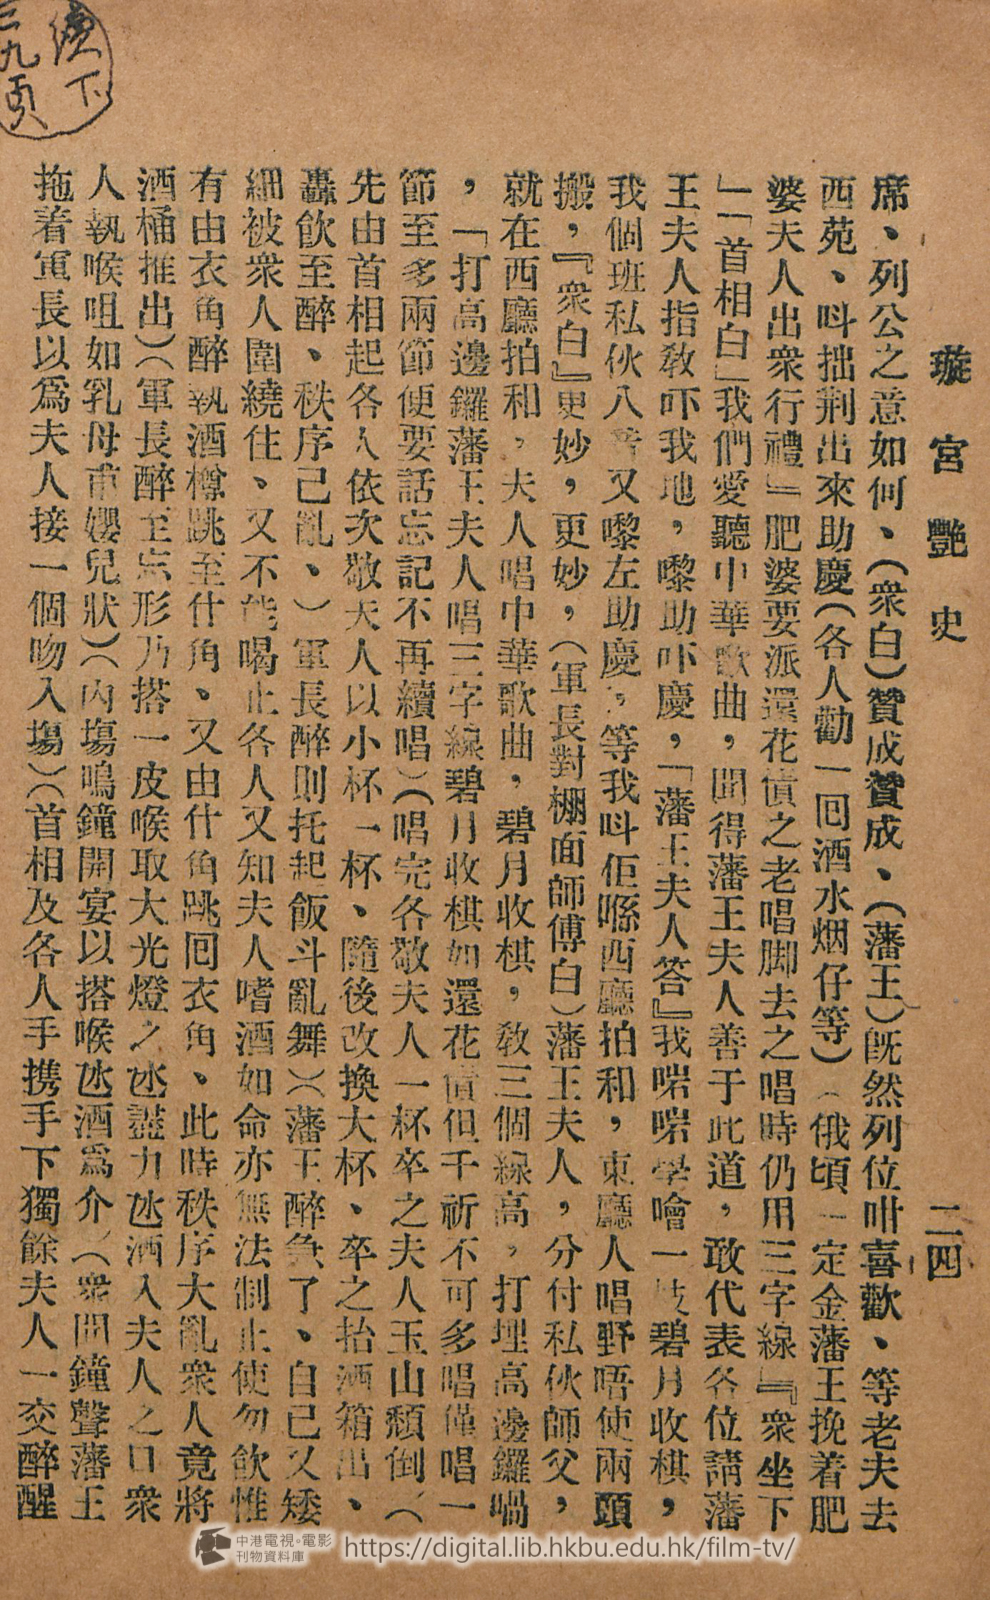 續下
三九頁
璇宮艷史
二四
席、列公之意如何、(衆白)贊成贊成、(藩王)旣然列位咁喜歡、等老夫去
西苑、呌拙荆出來助慶(各人勸一囘酒水烟仔等)(俄頃一定金藩王挽着肥
婆夫人出衆行禮』肥婆要派還花債之老唱脚去之唱時仍用三字線』『衆坐下
」「首相白」我們愛聽中華歌曲，聞得藩王夫人善于此道，敢代表各位請藩
王夫人指敎吓我地，嚟助吓慶，「藩王夫人答』我啱啱學噲一枝碧月收棋，
我個班私伙八音又嚟左助慶，等我呌佢喺西廳拍和，東廳人唱野唔使兩頭
搬，『衆白』更妙，更妙，(軍長對棚面師傅白)藩王夫人，分付私伙師父，
就在西廳拍和，夫人唱中華歌曲，碧月收棋，敎三個線高，打埋高邊鑼喎
，「打高邊鑼藩王夫人唱三字線碧月收棋如還花債但千祈不可多唱僅唱一
節至多兩節便要話忘記不再續唱)(唱完各敬夫人一杯卒之夫人玉山頽倒(
先由首相起各人依次敬夫人以小杯一杯、隨後改換大杯、卒之抬酒箱出、
轟飮至醉、秩序已亂、)軍長醉則托起飯斗亂舞)(藩王醉急了、自己又矮
細被衆人圍繞住、又不能喝止各人又知夫人嗜酒如命亦無法制止使勿飮惟
有由衣角醉執酒樽跳至什角、又由什角跳囘衣角、此時秩序大亂衆人竟將
酒桶推出)(軍長醉至忘形乃搭一皮喉取大光燈之氹盡力氹酒入夫人之口衆
人執喉咀如乳母車嬰兒狀)(內塲鳴鐘開宴以搭喉氹酒爲介)(衆聞鐘聲藩王
拖着軍長以爲夫人接一個吻入塲)(首相及各人手携手下獨餘夫人一交醉醒
中港電視・電影
刊物資料庫
https://digital.lib.hkbu.edu.hk/film-tv/